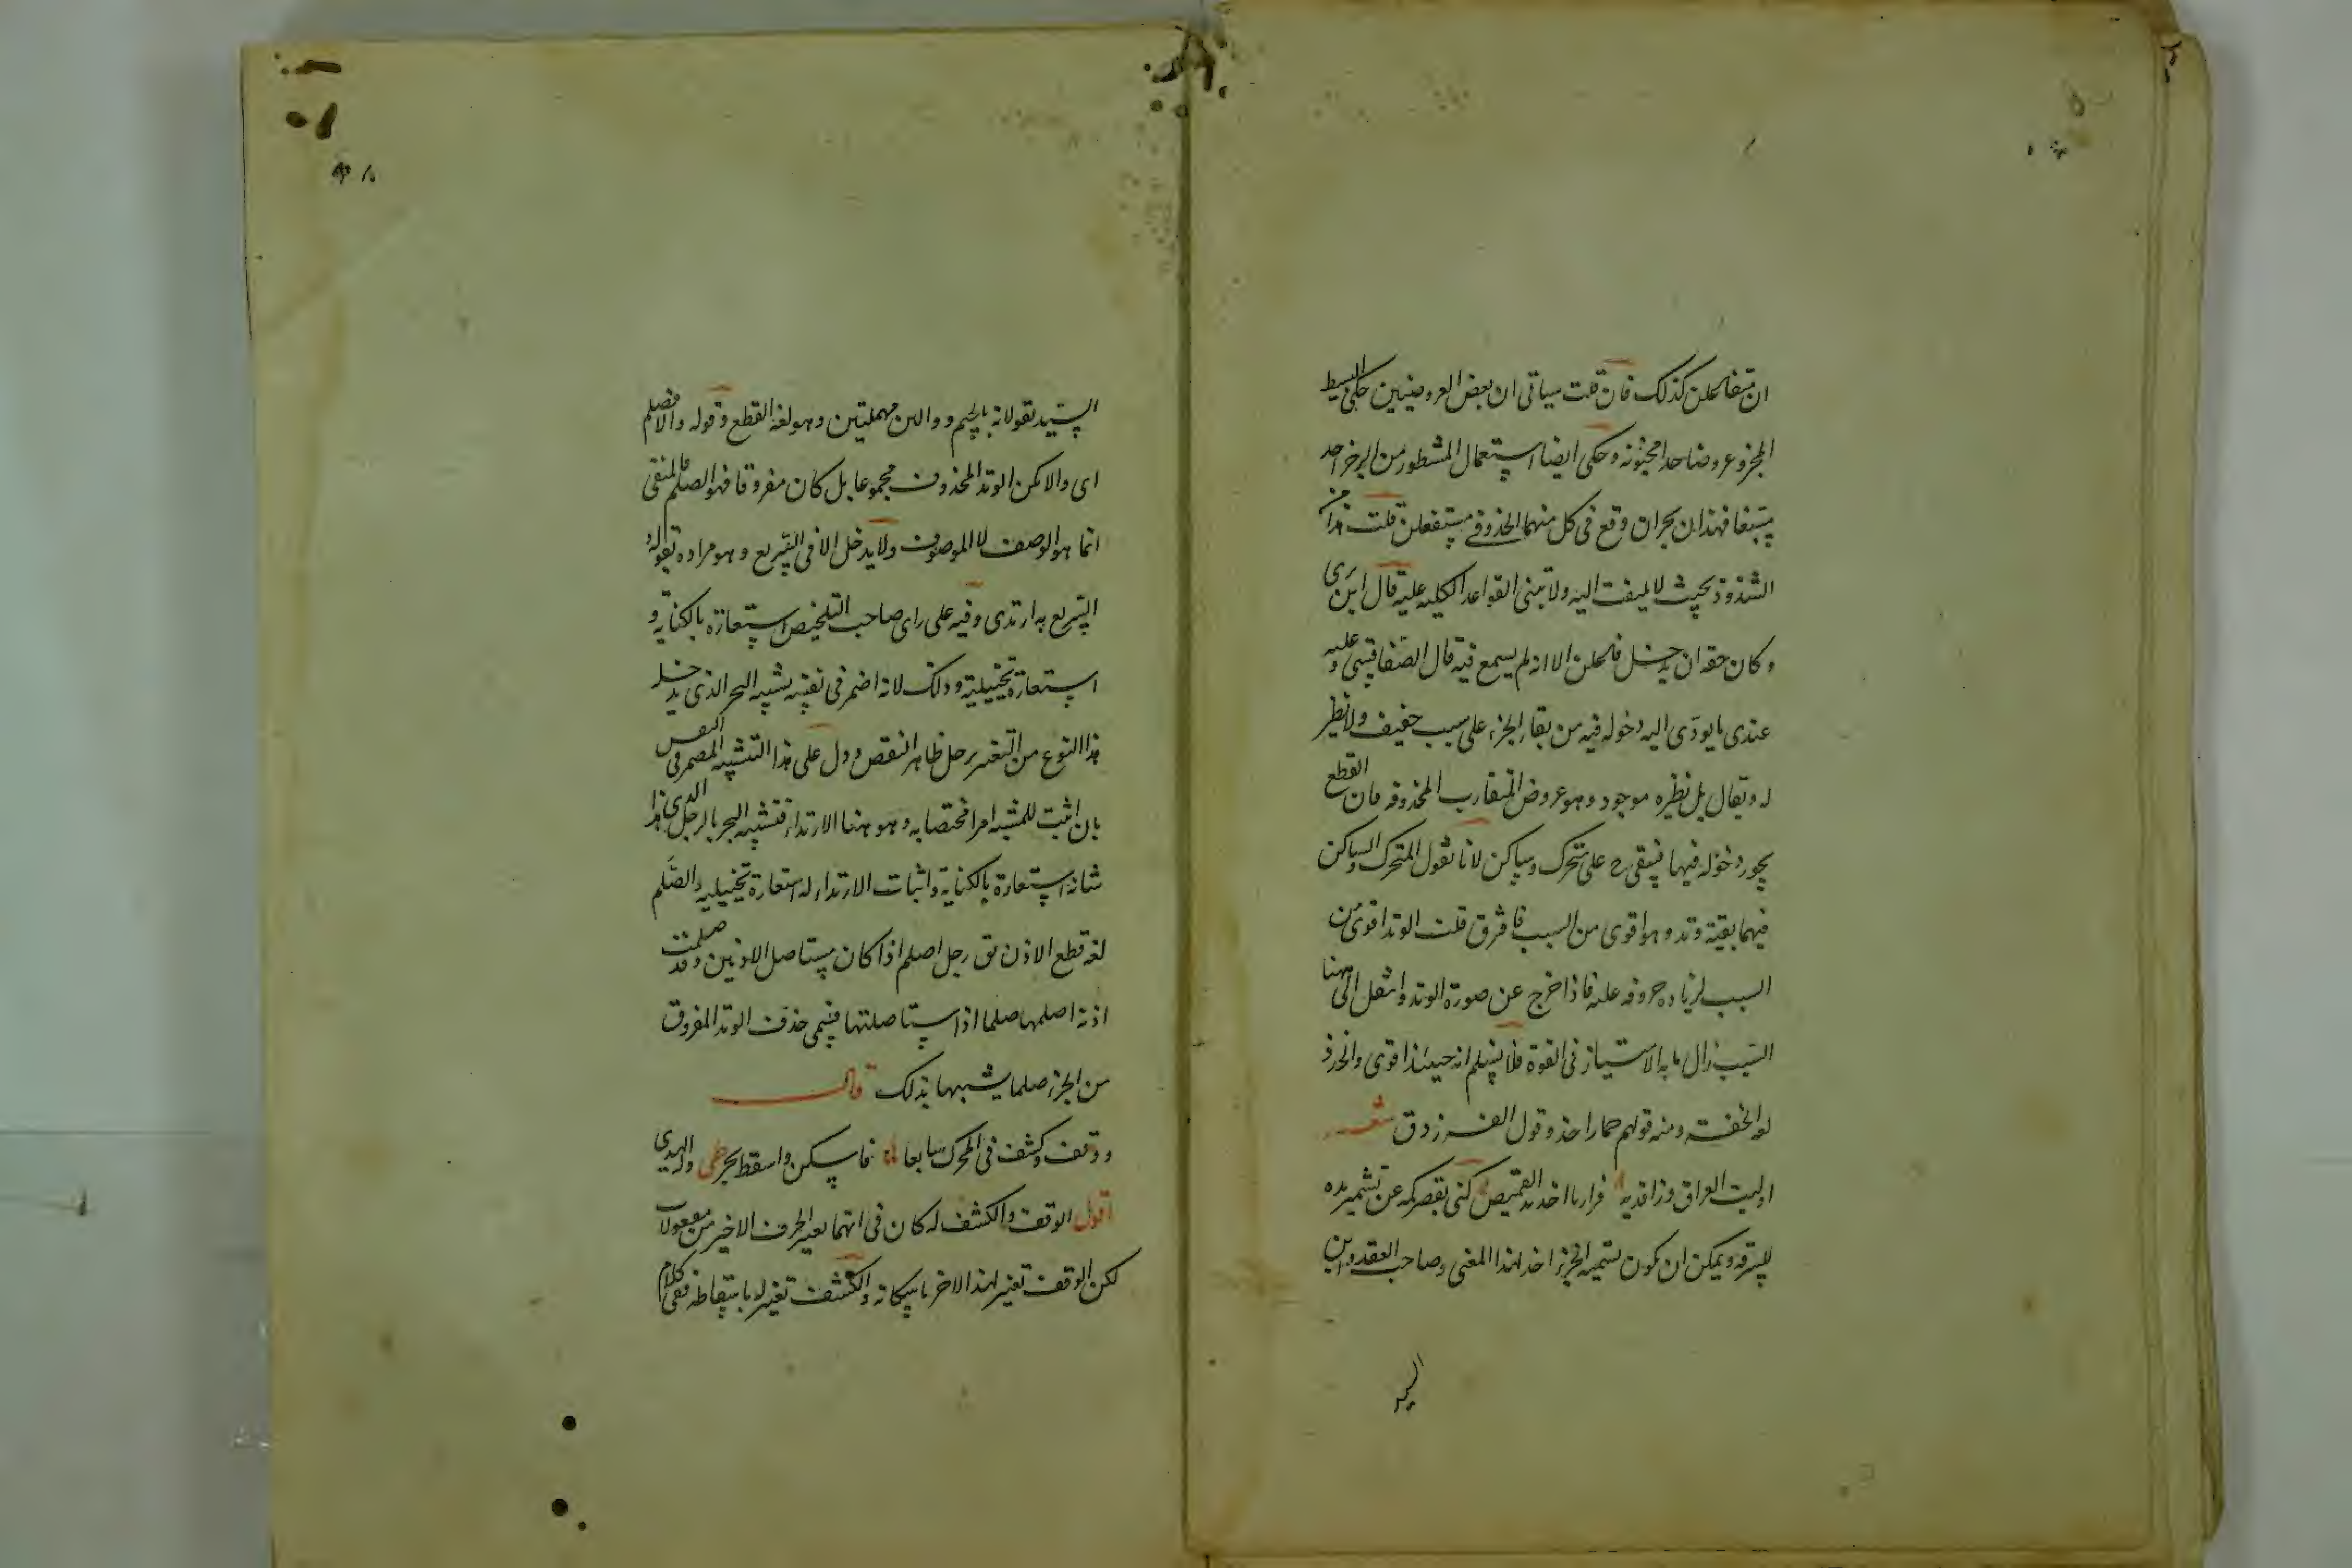 ان متفاعلن كذلك فان قلت سياتى ان بعض العروضيين حكى للبسيط
المجزو عروضا حدا مخبونة وحكى ايضا استعمال المشطور من الرجز احد
مسبغا فهذان بحران وقع فى كل منهما الحذذ فى مستفعلن قلت هذا من
الشذوذ بحيث لا يلتفت اليه ولا تبنى القواعد الكليه عليه قال ابن برى
وكان حقه ان يدخل فاعلن الا انه لم يسمع فيه قال الصفاقسى وعليه
عندى ما يودى اليه دخوله فيه من بقاء الجزء على سبب خفيف ولا نظير
له ويقال بل نظيره موجود وهو عروض المتقارب المحذوفه فان القطع
يجوز دخوله فيها فيبقى ح على متحرك وساكن لانا نقول المتحرك والساكن
فيهما بقية وتد وهو اقوى من السبب فافترق قلت الوتد اقوى من
السبب لزياده حروفه عليه فاذا خرج عن صورة الوتد وانتقل الى هنا
السبب زال ما به الامتياز فى القوة فلا يسلم انه حينئذ اقوى والحذذ
لغه الخفته ومنه قولهم حمار احذ وقول الفرزدق شعر
اوليت العراق ورافديه فزاريا احذ يد القميص كنى بقصر كمه عن تشمير يده
للسرقه ويمكن ان يكون تسميه الجزء احذ لهذا المعنى وصاحب العقد وابن
السيد
السيد يقولانه بالجيم ودالين مهملتين وهو لغة القطع وقوله والا فصلم
اى والا يكن الوتد المحذوف مجموعا بل كان مفروقا فهو الصلم فالمنفى
انما هو الوصف لا الموصوف ولا يدخل الا فى السريع وهو مراده بقوله
السريع به ارتدى وفيه على راى صاحب التلخيص استعارة بالكناية و
استعارة تخييلية وذلك لانه اضمر فى نفسه تشبيه البحر الذى يدخله
هذا النوع من التغير برجل ظاهر النقص ودل على هذا التشبيه المضمر فى النفس
بان اثبت للمشبه امرا مختصا به وهو هنا الارتداء فتشبيه البحر بالرجل الذى هذا
شانه استعارة بالكناية واثبات الارتداء له استعارة تخييليه والصلم
لغه قطع الاذن يق رجل اصلم اذا كان مستاصل الاذنين وقد صلمت
اذنه اصلمها صلما اذا استاصلتها فسمى حذف الوتد المفروق
من الجزء صلما يشبهها بذلك قال
ووقف وكشف فى المحرك سابعا فاسكن واسقط بحر طى ولهدى
اقول الوقف والكشف له كان فى انهما تغيير الحرف الاخير من مفعولات
لكن الوقف تغير لهذا الاخر باسكانه والكشف تغير له باسقاطه ففى كلام